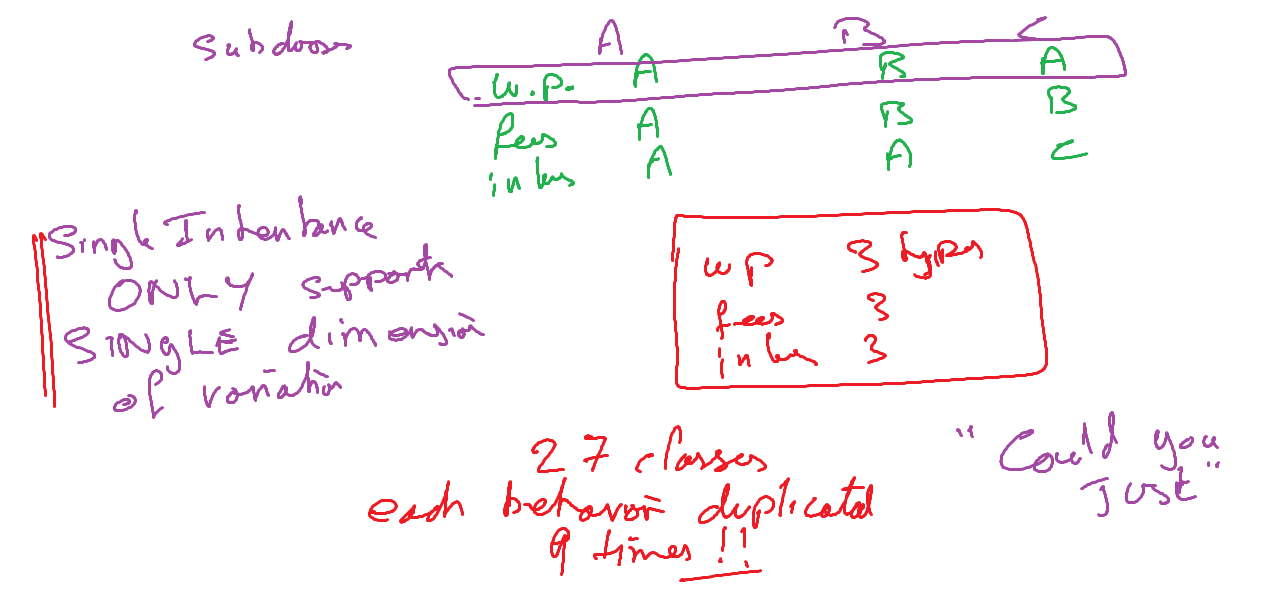 Subclasses A B C
w.p. A B A
fees A B B
in tres A A C
Single Inheritance
ONLY supports
SINGLE dimension
of variation
wp 3 types
fees 3
in tres 3
27 classes
each behavior duplicated
9 times !!
"Could you
Just"